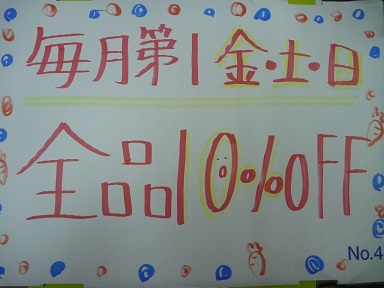 毎月第1金・土・日
全品10%OFF
No.4